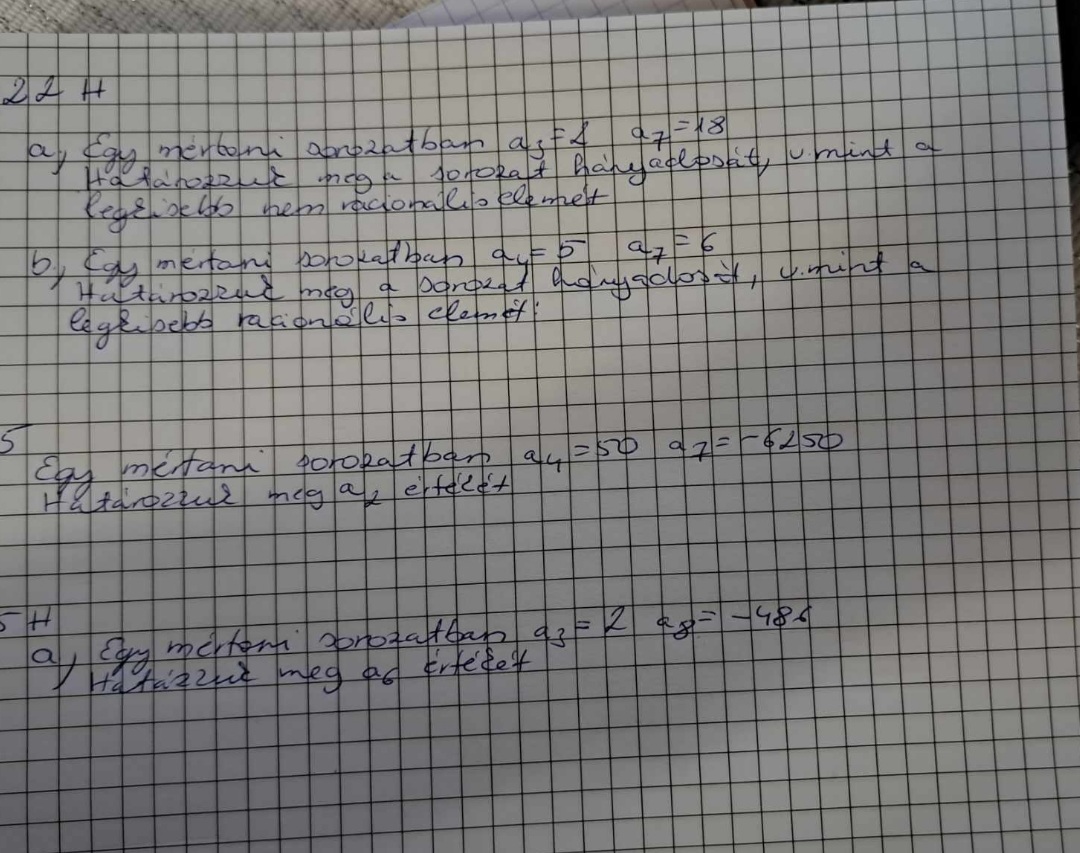 22 H
a, Egy mértani sorozatban a₃=2 a₇=18
Határozzuk meg a sorozat hányadosát, v.mint a
legkisebb nem racionális elemét
b, Egy mértani sorozatban a₄=5 a₇=6
Határozzuk meg a sorozat hányadosát, v.mint a
legkisebb racionális elemét.
5
Egy mértani sorozatban a₄=50 a₇=-6250
Határozzuk meg a₂ értékét
5 H
a, Egy mértani sorozatban a₃=2 a₈=-486
Határzzuk meg a₆ értékét